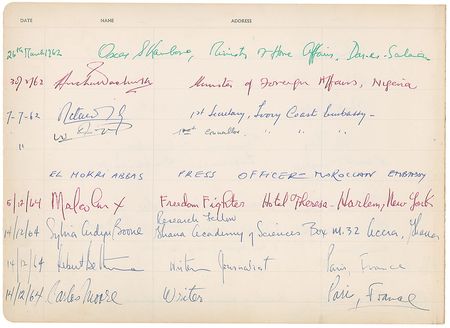 DATE NAME ADDRESS
26th March 1962 Oscar S Kambona, Minister of Home Affairs, Dar-es-Salaam
3/7/62 Minister of Foreign Affairs, Nigeria
7-7-62 1st Secretary, Ivory Coast Embassy-
" Counsellor " " "
EL MOKRI ABBAS PRESS OFFICER - MAROCCAN EMBASSY
5/12/64 Malcolm X Freedom Fighter Hotel Theresa - Harlem, New York
Research Fellow
14/12/64 Sylvia Ardyn Boone Ghana Academy of Sciences Box M.32 Accra, Ghana
14/12/64 Writer Journalist Paris, France
14/12/64 Carlos Moore Writer Paris, France